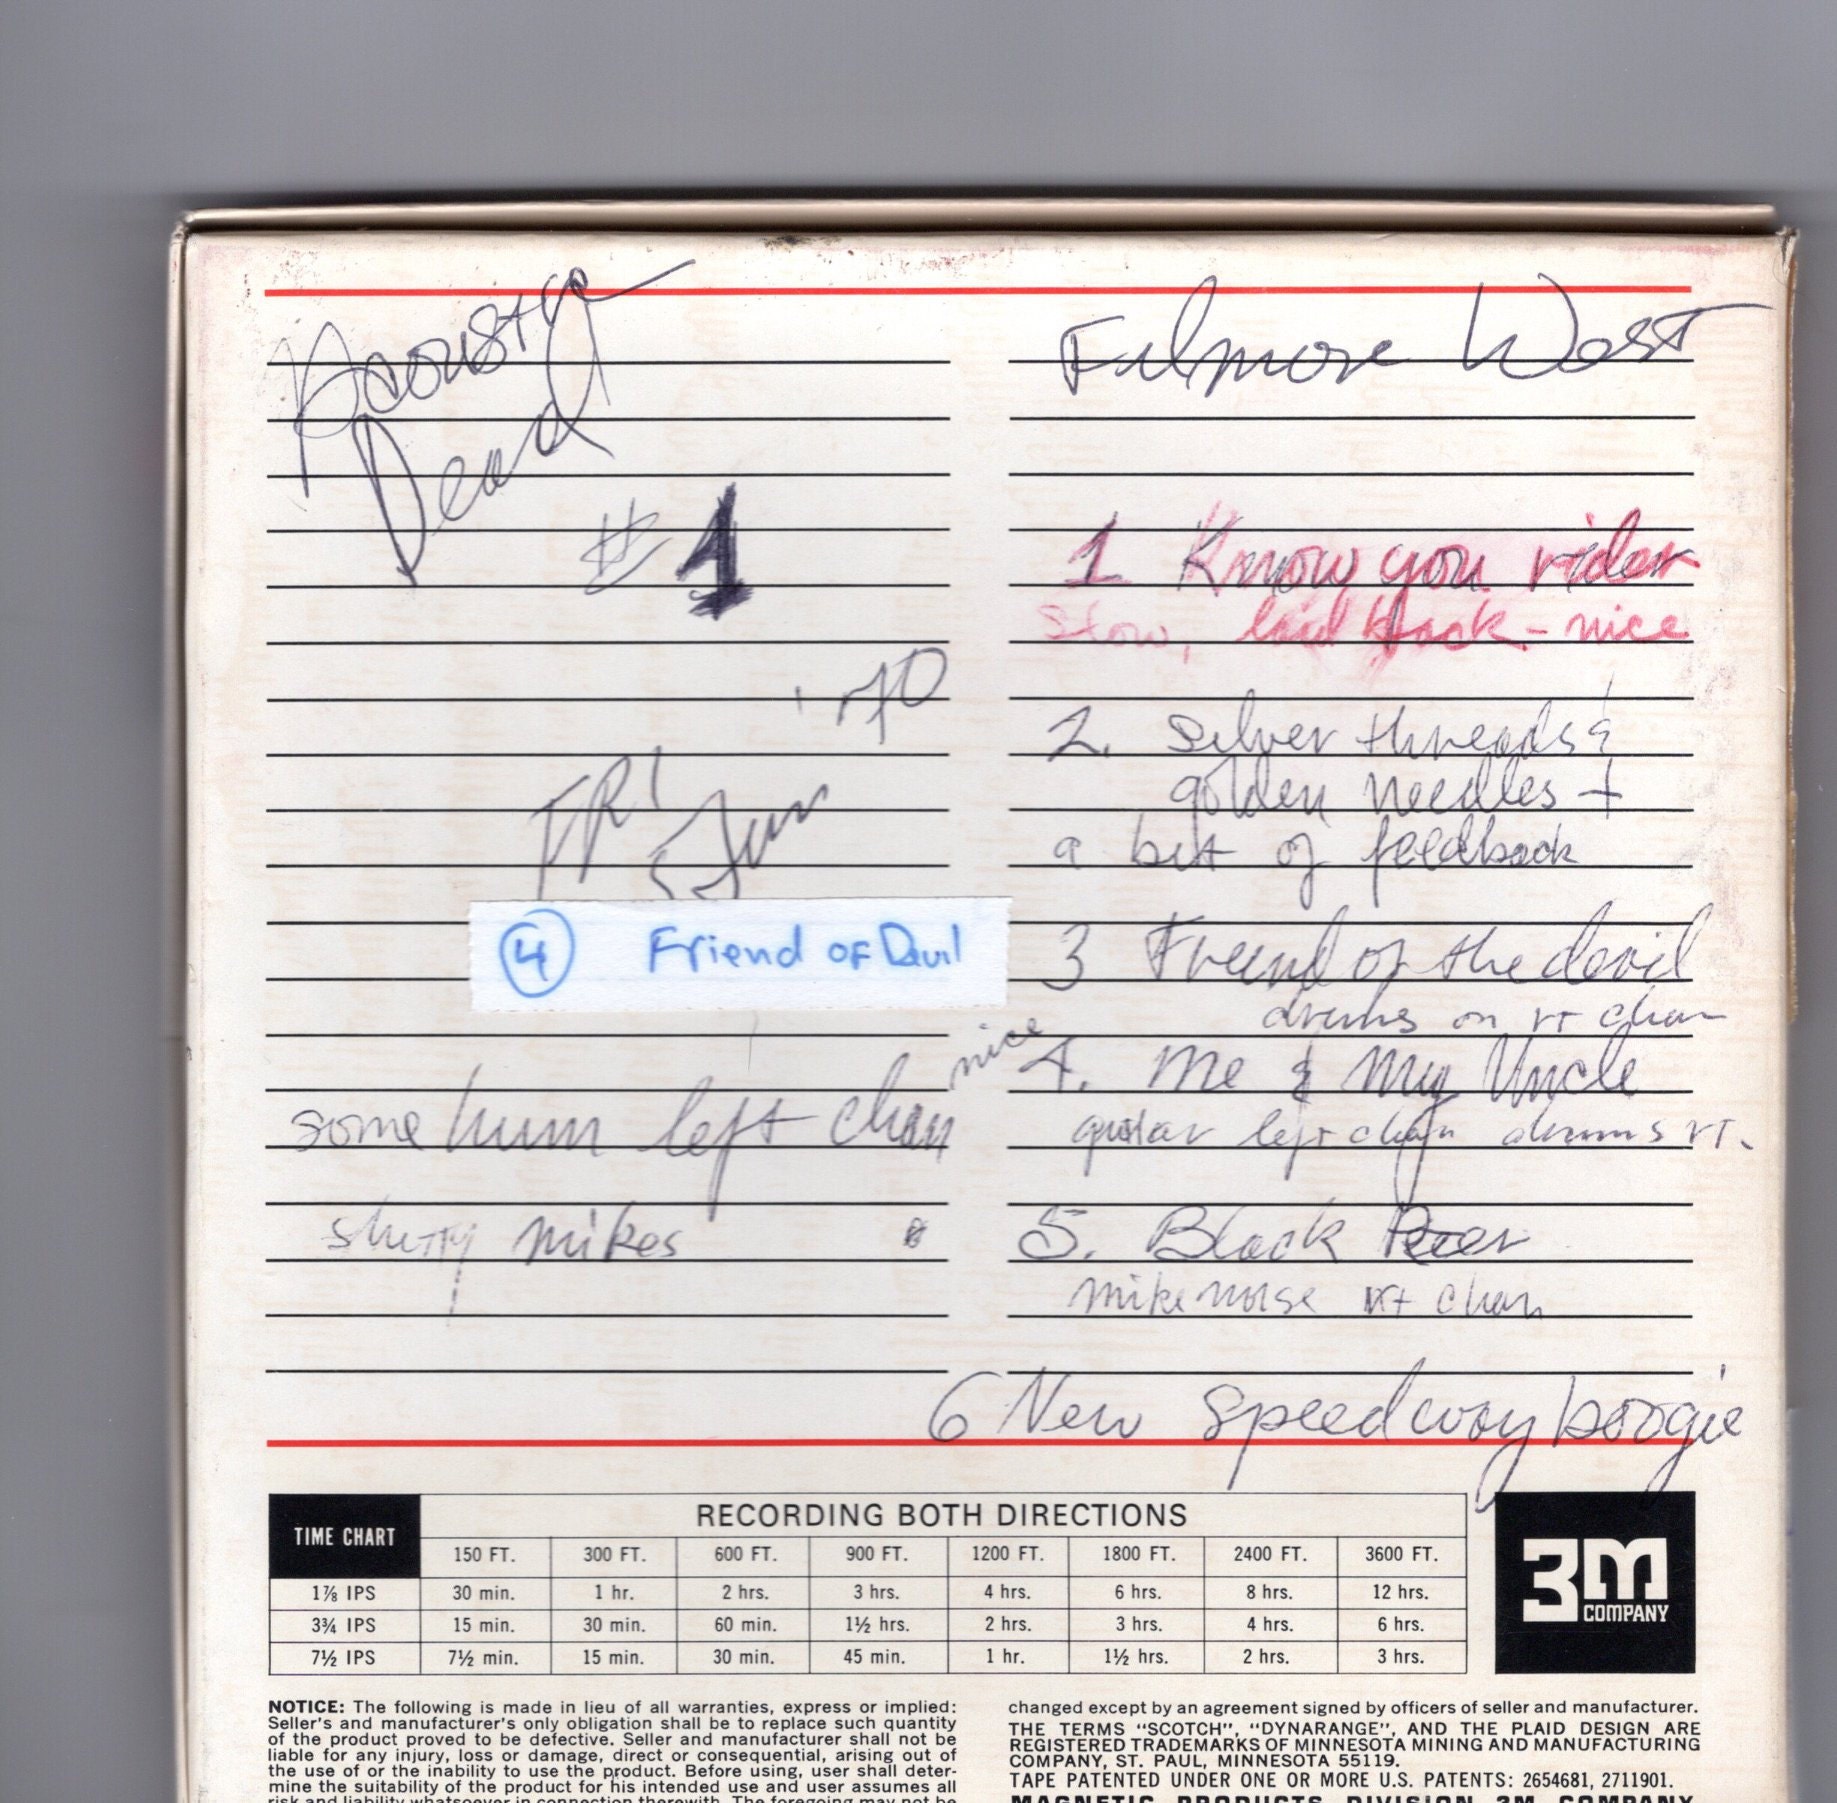 Acoustic
Dead
# 1
'70
FRI
5 Jun
④ Friend of Devil
some hum left chan
shitty mikes
Fillmore West
1 Know you rider
Slow, laid back - nice
2. Silver threads &
golden needles +
a bit of feedback
3 Friend of the devil
drums on rt chan
nice
4. Me & My Uncle
guitar left chan drums rt.
5. Black Peter
mike noise rt chan
6 New Speedway boogie
TIME CHART
RECORDING BOTH DIRECTIONS
150 FT. 300 FT. 600 FT. 900 FT. 1200 FT. 1800 FT. 2400 FT. 3600 FT.
1⅞ IPS 30 min. 1 hr. 2 hrs. 3 hrs. 4 hrs. 6 hrs. 8 hrs. 12 hrs.
3¾ IPS 15 min. 30 min. 60 min. 1½ hrs. 2 hrs. 3 hrs. 4 hrs. 6 hrs.
7½ IPS 7½ min. 15 min. 30 min. 45 min. 1 hr. 1½ hrs. 2 hrs. 3 hrs.
3M
COMPANY
NOTICE: The following is made in lieu of all warranties, express or implied:
Seller's and manufacturer's only obligation shall be to replace such quantity
of the product proved to be defective. Seller and manufacturer shall not be
liable for any injury, loss or damage, direct or consequential, arising out of
the use of or the inability to use the product. Before using, user shall deter-
mine the suitability of the product for his intended use and user assumes all
risk and liability whatsoever in connection therewith. The foregoing may not be
changed except by an agreement signed by officers of seller and manufacturer.
THE TERMS "SCOTCH", "DYNARANGE", AND THE PLAID DESIGN ARE
REGISTERED TRADEMARKS OF MINNESOTA MINING AND MANUFACTURING
COMPANY, ST. PAUL, MINNESOTA 55119.
TAPE PATENTED UNDER ONE OR MORE U.S. PATENTS: 2654681, 2711901.
MAGNETIC PRODUCTS DIVISION 3M COMPANY